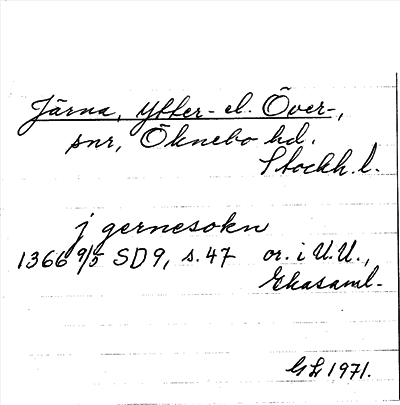 Järna, Ytter- el. Över-,
snr, Öknebo hd.
Stockh. l.
j gernesokn
1366 9/5 SD 9, s. 47 or. i U.U.,
Ekasaml.
GL 1971.